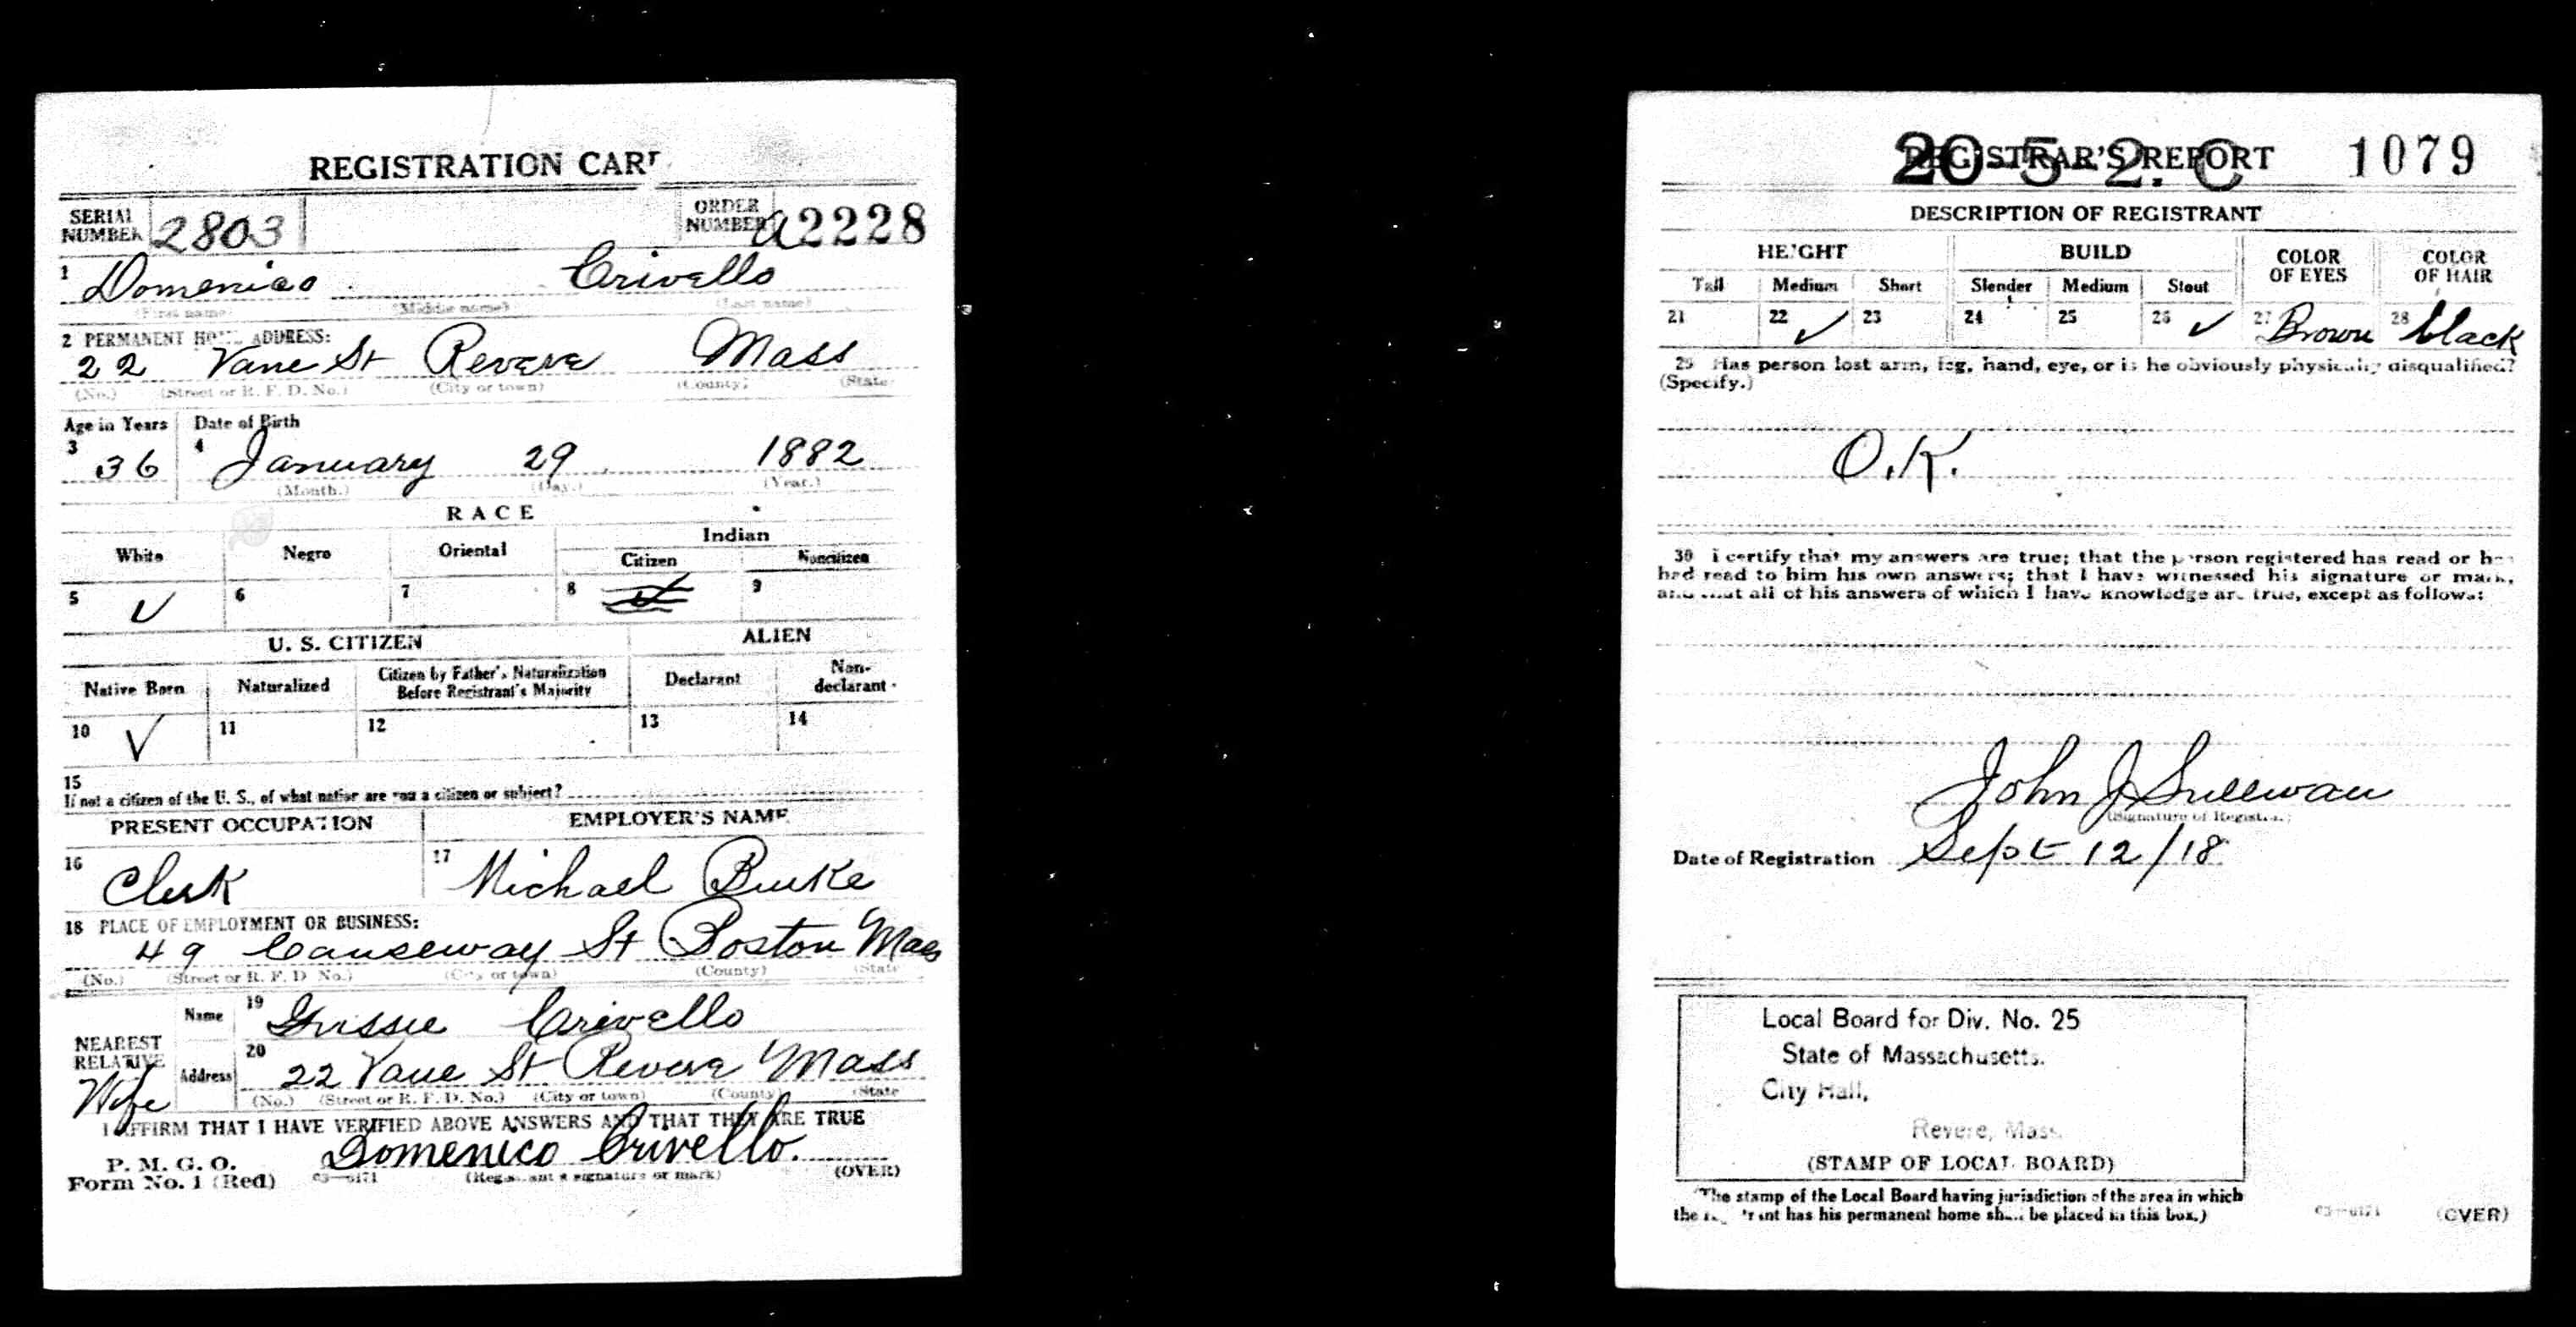 REGISTRATION CARD
SERIAL NUMBER 2803 ORDER NUMBER a2228
1 Domenico Crivello
(First name) (Middle name) (Last name)
2 PERMANENT HOME ADDRESS:
22 Vane St Revere Mass
(No.) (Street or R. F. D. No.) (City or town) (County) (State)
Age in Years Date of Birth
3 36 4 January 29 1882
(Month.) (Day.) (Year.)
RACE
White Negro Oriental Indian
Citizen Noncitizen
5 ✓ 6 7 8 9
U. S. CITIZEN ALIEN
Native Born Naturalized Citizen by Father's Naturalization Before Registrant's Majority Declarant Non-declarant
10 ✓ 11 12 13 14
15
If not a citizen of the U. S., of what nation are you a citizen or subject?
PRESENT OCCUPATION EMPLOYER'S NAME
16 Clerk 17 Michael Burke
18 PLACE OF EMPLOYMENT OR BUSINESS:
49 Causeway St Boston Mass
(No.) (Street or R. F. D. No.) (City or town) (County) (State)
NEAREST RELATIVE Wife
Name 19 Crivello
Address 20 22 Vane St Revere Mass
(No.) (Street or R. F. D. No.) (City or town) (County) (State)
I AFFIRM THAT I HAVE VERIFIED ABOVE ANSWERS AND THAT THEY ARE TRUE
P. M. G. O.
Form No. 1 (Red) 03—6171 Domenico Crivello.
(Registrant's signature or mark) (OVER)
REGISTRAR'S REPORT 1079
20-5-2. C
DESCRIPTION OF REGISTRANT
HEIGHT BUILD COLOR OF EYES COLOR OF HAIR
Tall Medium Short Slender Medium Stout
21 22 ✓ 23 24 25 26 ✓ 27 Brown 28 black
29 Has person lost arm, leg, hand, eye, or is he obviously physically disqualified?
(Specify.)
O.K.
30 I certify that my answers are true; that the person registered has read or has
had read to him his own answers; that I have witnessed his signature or mark,
and that all of his answers of which I have knowledge are true, except as follows:
John J Sullivan
(Signature of Registrar)
Date of Registration Sept 12/18
Local Board for Div. No. 25
State of Massachusetts.
City Hall,
Revere, Mass.
(STAMP OF LOCAL BOARD)
(The stamp of the Local Board having jurisdiction of the area in which
the registrant has his permanent home shall be placed in this box.)
03—6171 (OVER)